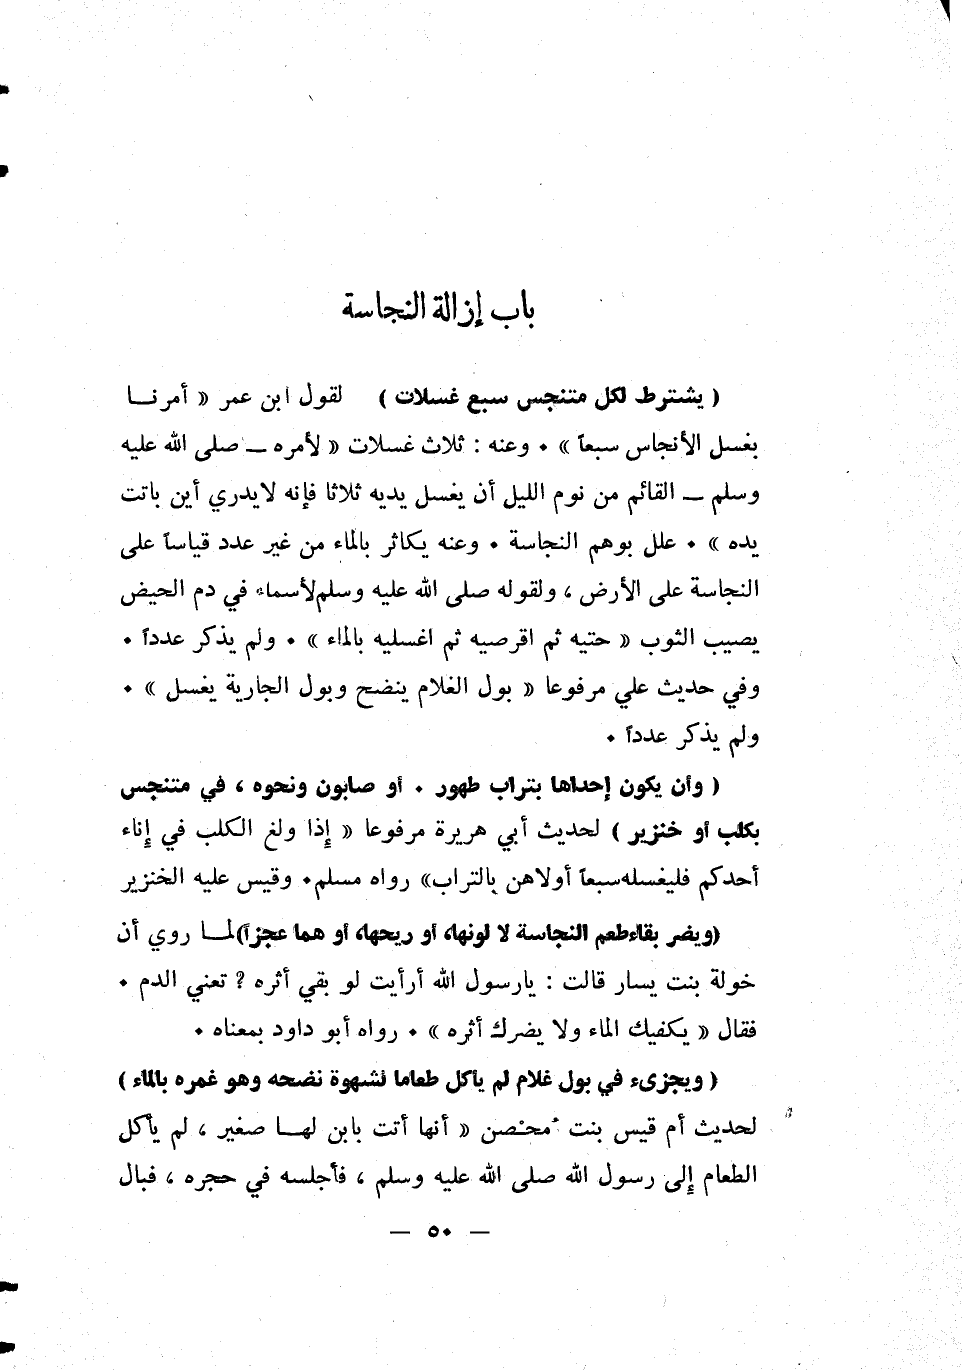 باب إزالة النجاسة
( يشترط لكل متنجس سبع غسلات ) لقول ابن عمر « أمرنــا
بغسل الأنجاس سبعاً » ٠ وعنه : ثلاث غسلات « لأمره ــ صلى الله عليه
وسلم ــ القائم من نوم الليل أن يغسل يديه ثلاثا فإنه لايدري أين باتت
يده » ٠ علل بوهم النجاسة ٠ وعنه يكاثر بالماء من غير عدد قياساً على
النجاسة على الأرض ، ولقوله صلى الله عليه وسلم لأسماء في دم الحيض
يصيب الثوب « حتيه ثم اقرصيه ثم اغسليه بالماء » ٠ ولم يذكر عدداً ٠
وفي حديث علي مرفوعا « بول الغلام ينضح وبول الجارية يغسل » ٠
ولم يذكر عدداً ٠
( وأن يكون إحداها بتراب طهور ٠ أو صابون ونحوه ، في متنجس
بكلب أو خنزير ) لحديث أبي هريرة مرفوعا « إذا ولغ الكلب في إناء
أحدكم فليغسله سبعاً أولاهن بالتراب» رواه مسلم٠ وقيس عليه الخنزير
(ويضر بقاء طعم النجاسة لا لونها، أو ريحها، أو هما عجزاً) لمــا روي أن
خولة بنت يسار قالت : يارسول الله أرأيت لو بقي أثره ؟ تعني الدم ٠
فقال « يكفيك الماء ولا يضرك أثره » ٠ رواه أبو داود بمعناه ٠
( ويجزىء في بول غلام لم يأكل طعاما لشهوة نضحه وهو غمره بالماء )
لحديث أم قيس بنت محصن « أنها أتت بابن لهــا صغير ، لم يأكل
الطعام إلى رسول الله صلى الله عليه وسلم ، فأجلسه في حجره ، فبال
— ٥٠ —